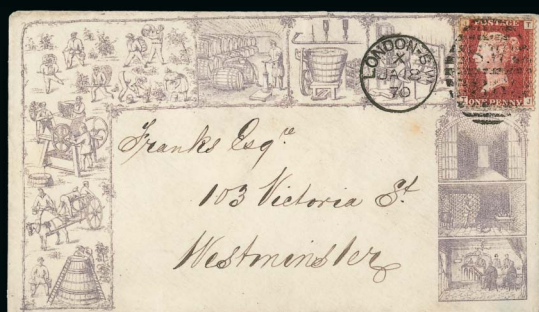 LONDON·S.W
X
JA 12
70
POSTAGE
ONE PENNY
Franks Esqre
103 Victoria St.
Westminster